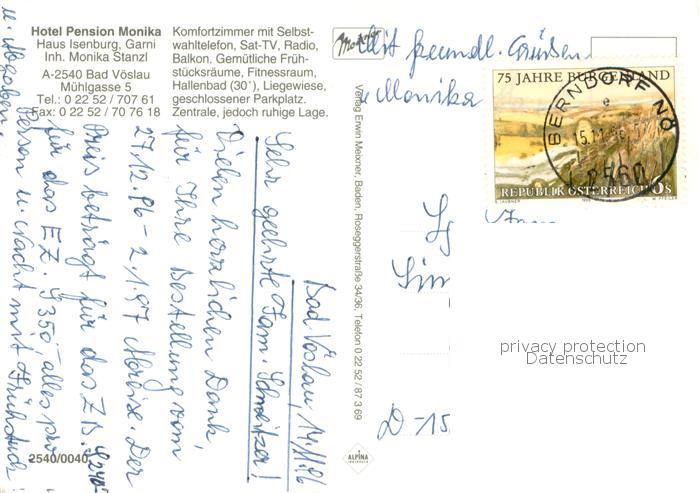 Hotel Pension Monika
Haus Isenburg, Garni
Inh. Monika Stanzl
A-2540 Bad Vöslau
Mühlgasse 5
Tel.: 0 22 52 / 707 61
Fax: 0 22 52 / 70 76 18
Komfortzimmer mit Selbst-
wahltelefon, Sat-TV, Radio,
Balkon. Gemütliche Früh-
stücksräume, Fitnessraum,
Hallenbad (30°), Liegewiese,
geschlossener Parkplatz.
Zentrale, jedoch ruhige Lage.
Bad Vöslau, 14.11.96
Sehr geehrte Fam. Schweitzer!
Vielen herzlichen Dank,
für Ihre Bestellung vom
27.12.96 - 2.1.97 Abreise. Der
Preis beträgt für das ZB.
für das EZ. S 350.- alles pro
Person u. Nacht mit Frühstück
u. Abgaben.
Mit freundl. Grüßen
Monika
2540/0040
Verlag Erwin Meixner, Baden, Roseggerstraße 34/36, Telefon 0 22 52 / 87 3 69
ALPINA
75 JAHRE BURGENLAND
REPUBLIK ÖSTERREICH
BERNDORF NÖ
2560
D-15
privacy protection
Datenschutz